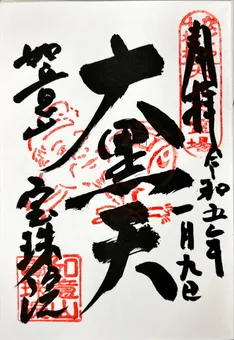 奉拝
令和五年一月九日
大黒天
如意山
宝珠院